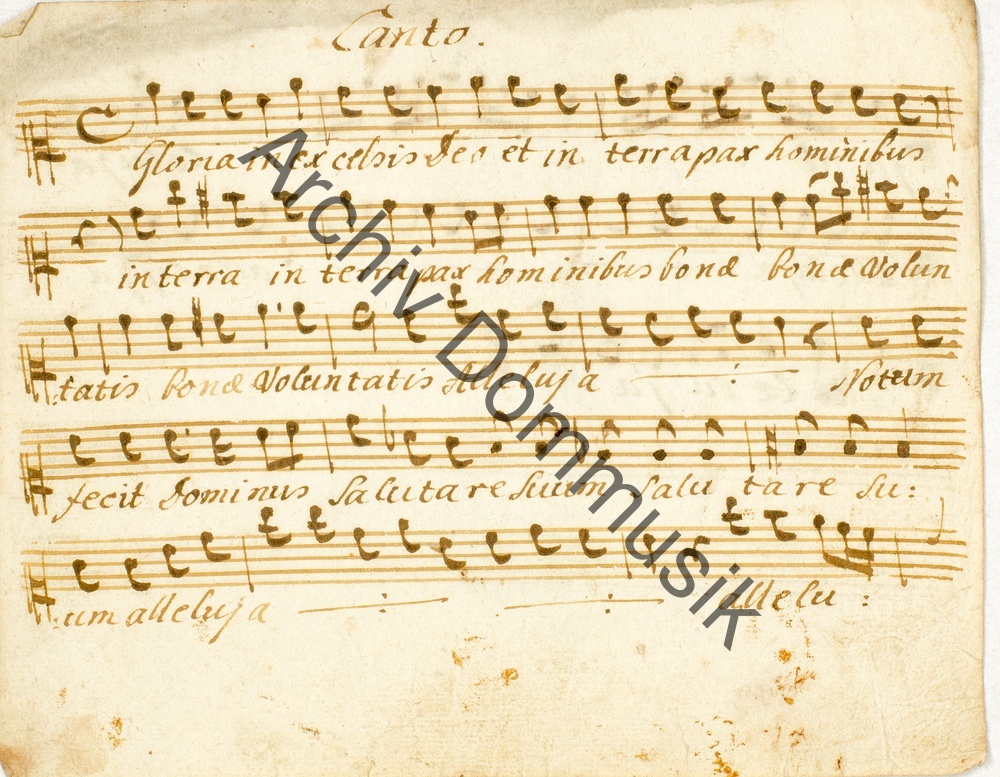 Canto.
Gloria in excelsis Deo et in terra pax hominibus
in terra in terra pax hominibus bonæ bonæ Volun
tatis bonæ Voluntatis Alleluja Notum
fecit Dominus Salutare Suum Salu tare Su:
um alleluja allelu:
Archiv Dommusik